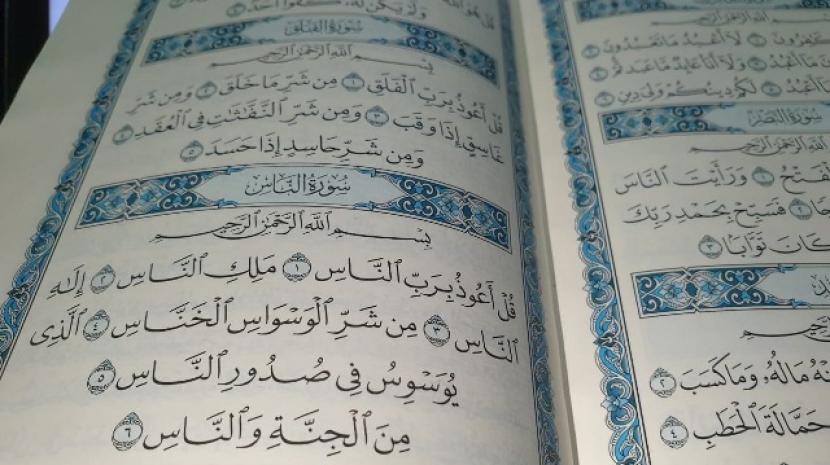 ٱللَّهِ ٱلرَّحْمَٰنِ ٱلرَّحِيمِ
ـفِرُونَ ١ لَآ أَعْبُدُ مَا تَعْبُدُونَ ٢
ـنَ مَآ أَعْبُدُ ٣ وَلَآ أَنَا۠ عَابِدٌ مَّا عَبَدتُّمْ ٤
مَآ أَعْبُدُ ٥ لَكُمْ دِينُكُمْ وَلِيَ دِينِ ٦
سُورَةُ النَّصْرِ
ٱللَّهِ ٱلرَّحْمَٰنِ ٱلرَّحِيمِ
ـفَتْحُ ١ وَرَأَيْتَ ٱلنَّاسَ
ـجًا ٢ فَسَبِّحْ بِحَمْدِ رَبِّكَ
كَانَ تَوَّابًۢا ٣
ٱلرَّحِيمِ
ـنْهُ مَالُهُۥ وَمَا كَسَبَ ٢
حَمَّالَةَ ٱلْحَطَبِ ٤
وَلَمْ يَكُن لَّهُۥ كُفُوًا أَحَدٌۢ ٤
سُورَةُ الفَلَقِ
بِسْمِ ٱللَّهِ ٱلرَّحْمَٰنِ ٱلرَّحِيمِ
قُلْ أَعُوذُ بِرَبِّ ٱلْفَلَقِ ١ مِن شَرِّ مَا خَلَقَ ٢ وَمِن شَرِّ
غَاسِقٍ إِذَا وَقَبَ ٣ وَمِن شَرِّ ٱلنَّفَّٰثَٰتِ فِي ٱلْعُقَدِ ٤
وَمِن شَرِّ حَاسِدٍ إِذَا حَسَدَ ٥
سُورَةُ النَّاسِ
بِسْمِ ٱللَّهِ ٱلرَّحْمَٰنِ ٱلرَّحِيمِ
قُلْ أَعُوذُ بِرَبِّ ٱلنَّاسِ ١ مَلِكِ ٱلنَّاسِ ٢ إِلَٰهِ
ٱلنَّاسِ ٣ مِن شَرِّ ٱلْوَسْوَاسِ ٱلْخَنَّاسِ ٤ ٱلَّذِي
يُوَسْوِسُ فِي صُدُورِ ٱلنَّاسِ ٥
مِنَ ٱلْجِنَّةِ وَٱلنَّاسِ ٦